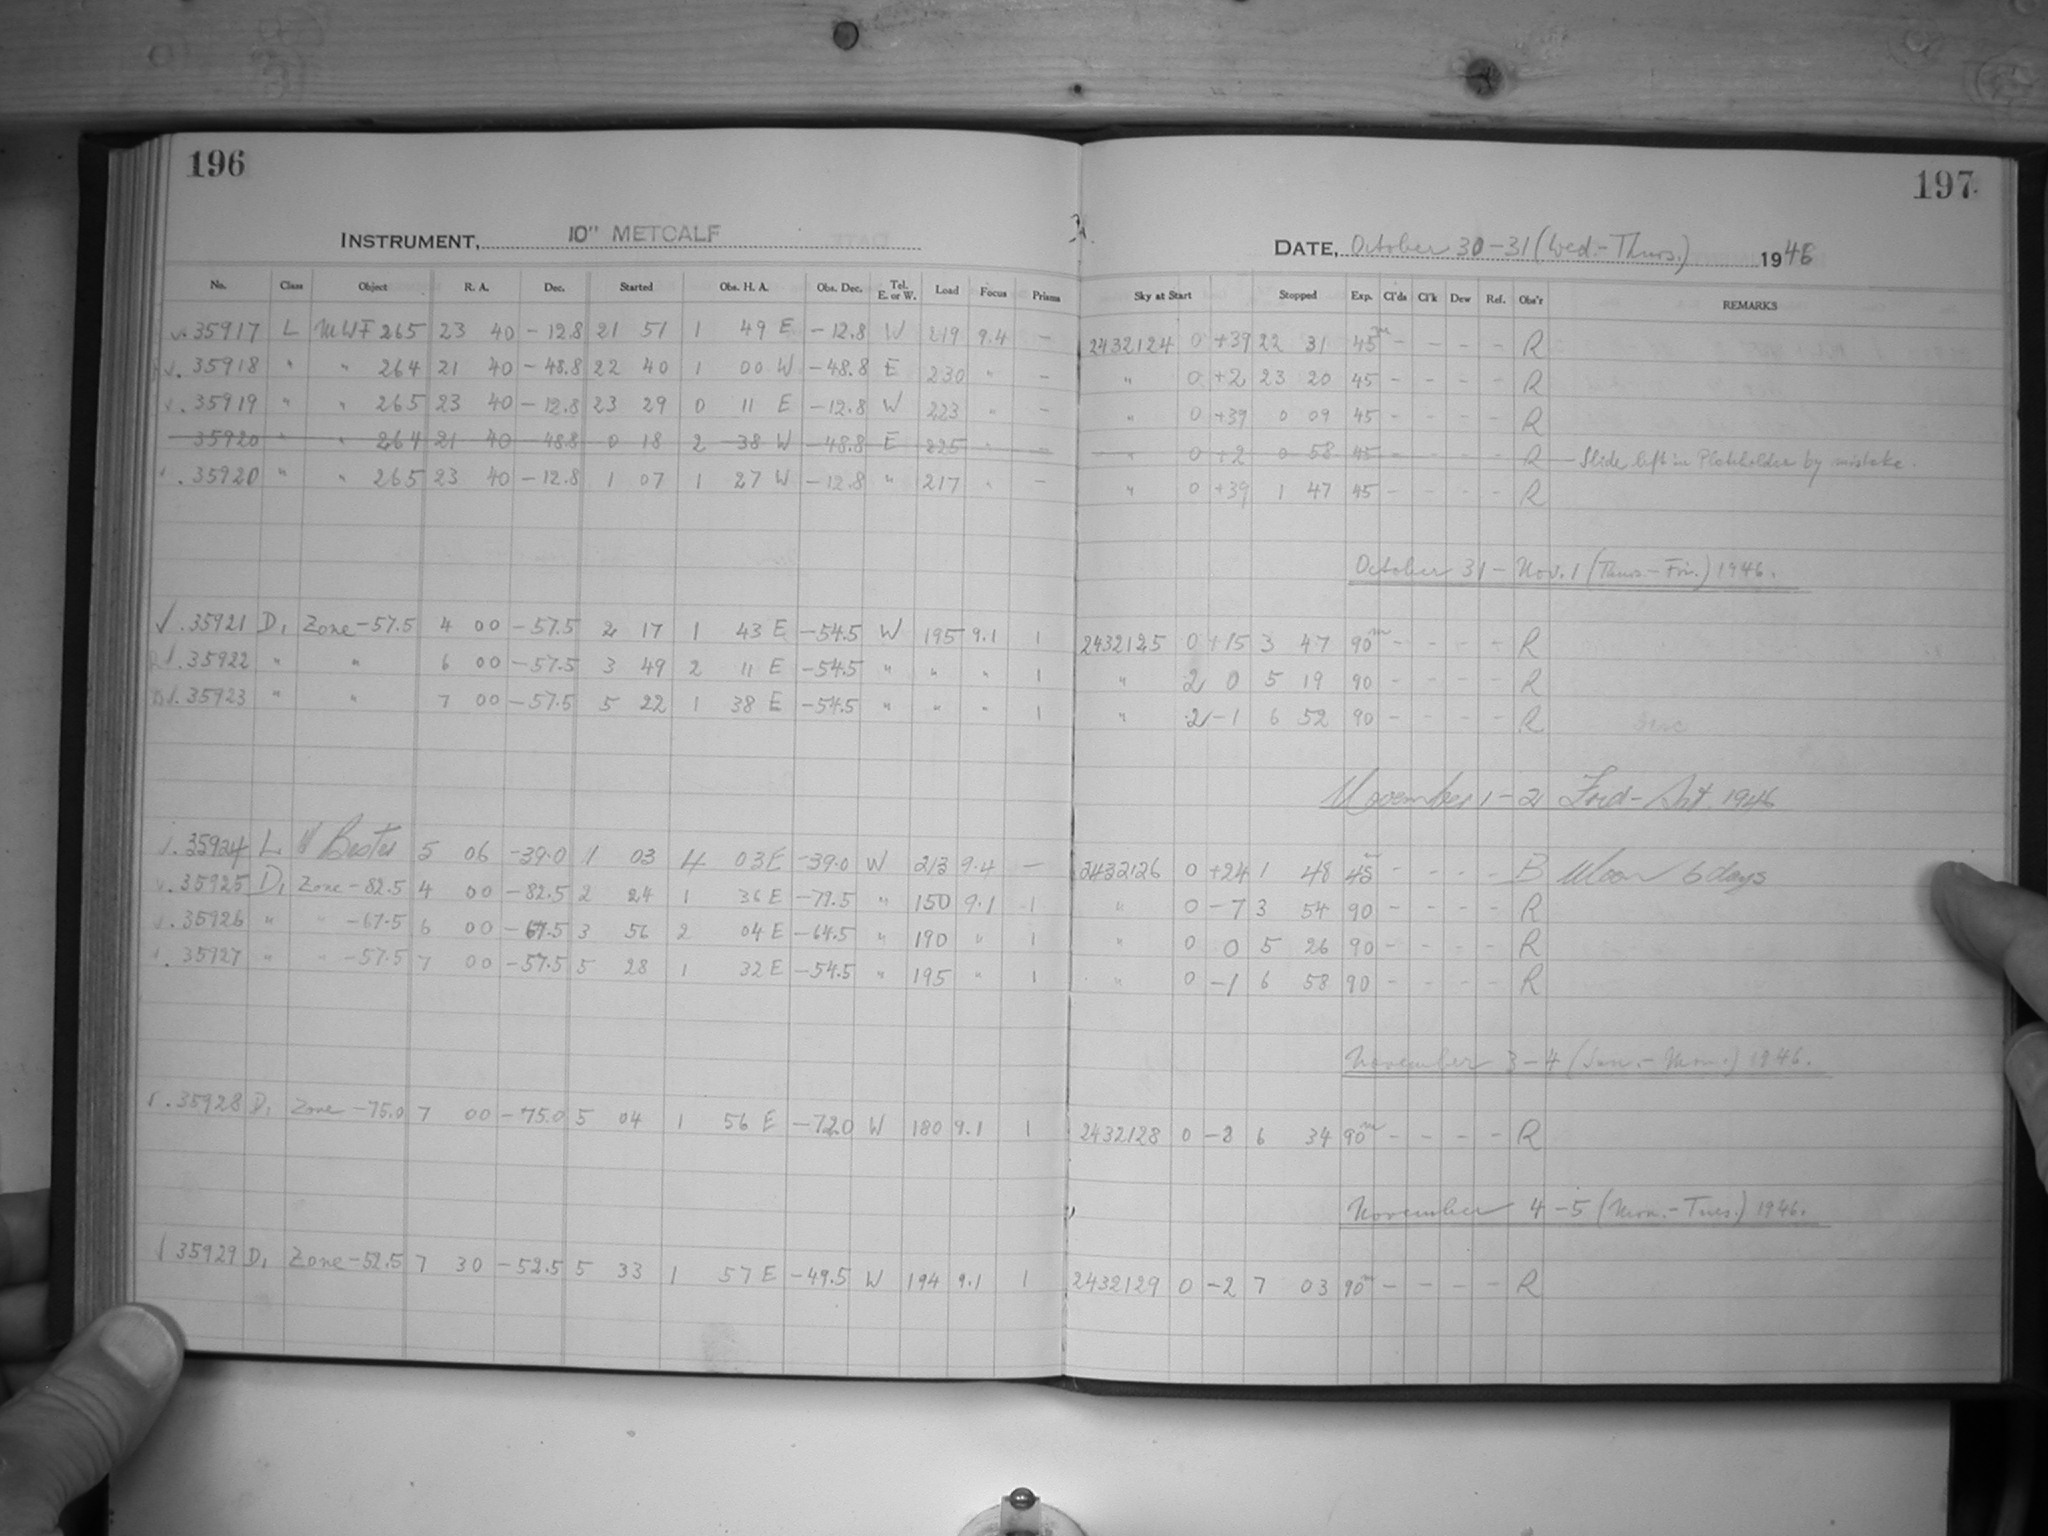 196
197
INSTRUMENT, 10" METCALF
DATE, October 30-31 (Wed.-Thurs.) 1946
No. Class Object R. A. Dec. Started Obs. H. A. Obs. Dec. Tel. E. or W. Load Focus Prisms Sky at Start Stopped Exp. Cl'ds Cl'k Dew Ref. Obs'r REMARKS
√.35917 L MWF 265 23 40 -12.8 21 51 1 49 E -12.8 W 219 9.4 - 2432124 0 +39 22 31 45m - - - - R
√.35918 " " 264 21 40 -48.8 22 40 1 00 W -48.8 E 230 " - " 0 +2 23 20 45 - - - - R
√.35919 " " 265 23 40 -12.8 23 29 0 11 E -12.8 W 223 " - " 0 +39 0 09 45 - - - - R
35920 " " 264 21 40 -48.8 0 18 2 38 W -48.8 E 225 " - " 0 +2 0 58 45 - - - - R Slide left in Plateholder by mistake.
.35920 " " 265 23 40 -12.8 1 07 1 27 W -12.8 " 217 " - " 0 +39 1 47 45 - - - - R
October 31 - Nov. 1 (Thurs.-Fri.) 1946.
√.35921 D1 Zone -57.5 4 00 -57.5 2 17 1 43 E -54.5 W 195 9.1 1 2432125 0 +15 3 47 90m - - - - R
√.35922 " " 6 00 -57.5 3 49 2 11 E -54.5 " " " 1 " 2 0 5 19 90 - - - - R
√.35923 " " 7 00 -57.5 5 22 1 38 E -54.5 " " " 1 " 2 -1 6 52 90 - - - - R
November 1-2 Frid-Sat. 1946
√.35924 L Bester 5 06 -39.0 1 03 4 03 E -39.0 W 213 9.4 - 2432126 0 +24 1 48 45m - - - - B Moon 6 days
√.35925 D1 Zone -82.5 4 00 -82.5 2 24 1 36 E -79.5 " 150 9.1 1 " 0 -7 3 54 90 - - - - R
√.35926 " " -67.5 6 00 -67.5 3 56 2 04 E -64.5 " 190 " 1 " 0 0 5 26 90 - - - - R
.35927 " " -57.5 7 00 -57.5 5 28 1 32 E -54.5 " 195 " 1 " 0 -1 6 58 90 - - - - R
November 3-4 (Sun.-Mon.) 1946.
√.35928 D1 Zone -75.0 7 00 -75.0 5 04 1 56 E -72.0 W 180 9.1 1 2432128 0 -8 6 34 90m - - - - R
November 4-5 (Mon.-Tues.) 1946.
√35929 D1 Zone -52.5 7 30 -52.5 5 33 1 57 E -49.5 W 194 9.1 1 2432129 0 -2 7 03 90m - - - - R